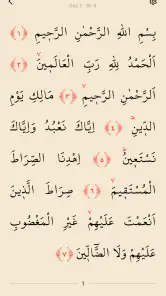 بِسْمِ اللّٰهِ الرَّحْمٰنِ الرَّحِيْمِ ﴿١﴾
اَلْحَمْدُ لِلّٰهِ رَبِّ الْعَالَمِيْنَ ﴿٢﴾
اَلرَّحْمٰنِ الرَّحِيْمِ ﴿٣﴾ مَالِكِ يَوْمِ
الدِّيْنِ ﴿٤﴾ اِيَّاكَ نَعْبُدُ وَاِيَّاكَ
نَسْتَعِيْنُ ﴿٥﴾ اِهْدِنَا الصِّرَاطَ
الْمُسْتَقِيْمَ ﴿٦﴾ صِرَاطَ الَّذِيْنَ
اَنْعَمْتَ عَلَيْهِمْ غَيْرِ الْمَغْضُوْبِ
عَلَيْهِمْ وَلَا الضَّٓالِّيْنَ ﴿٧﴾
1